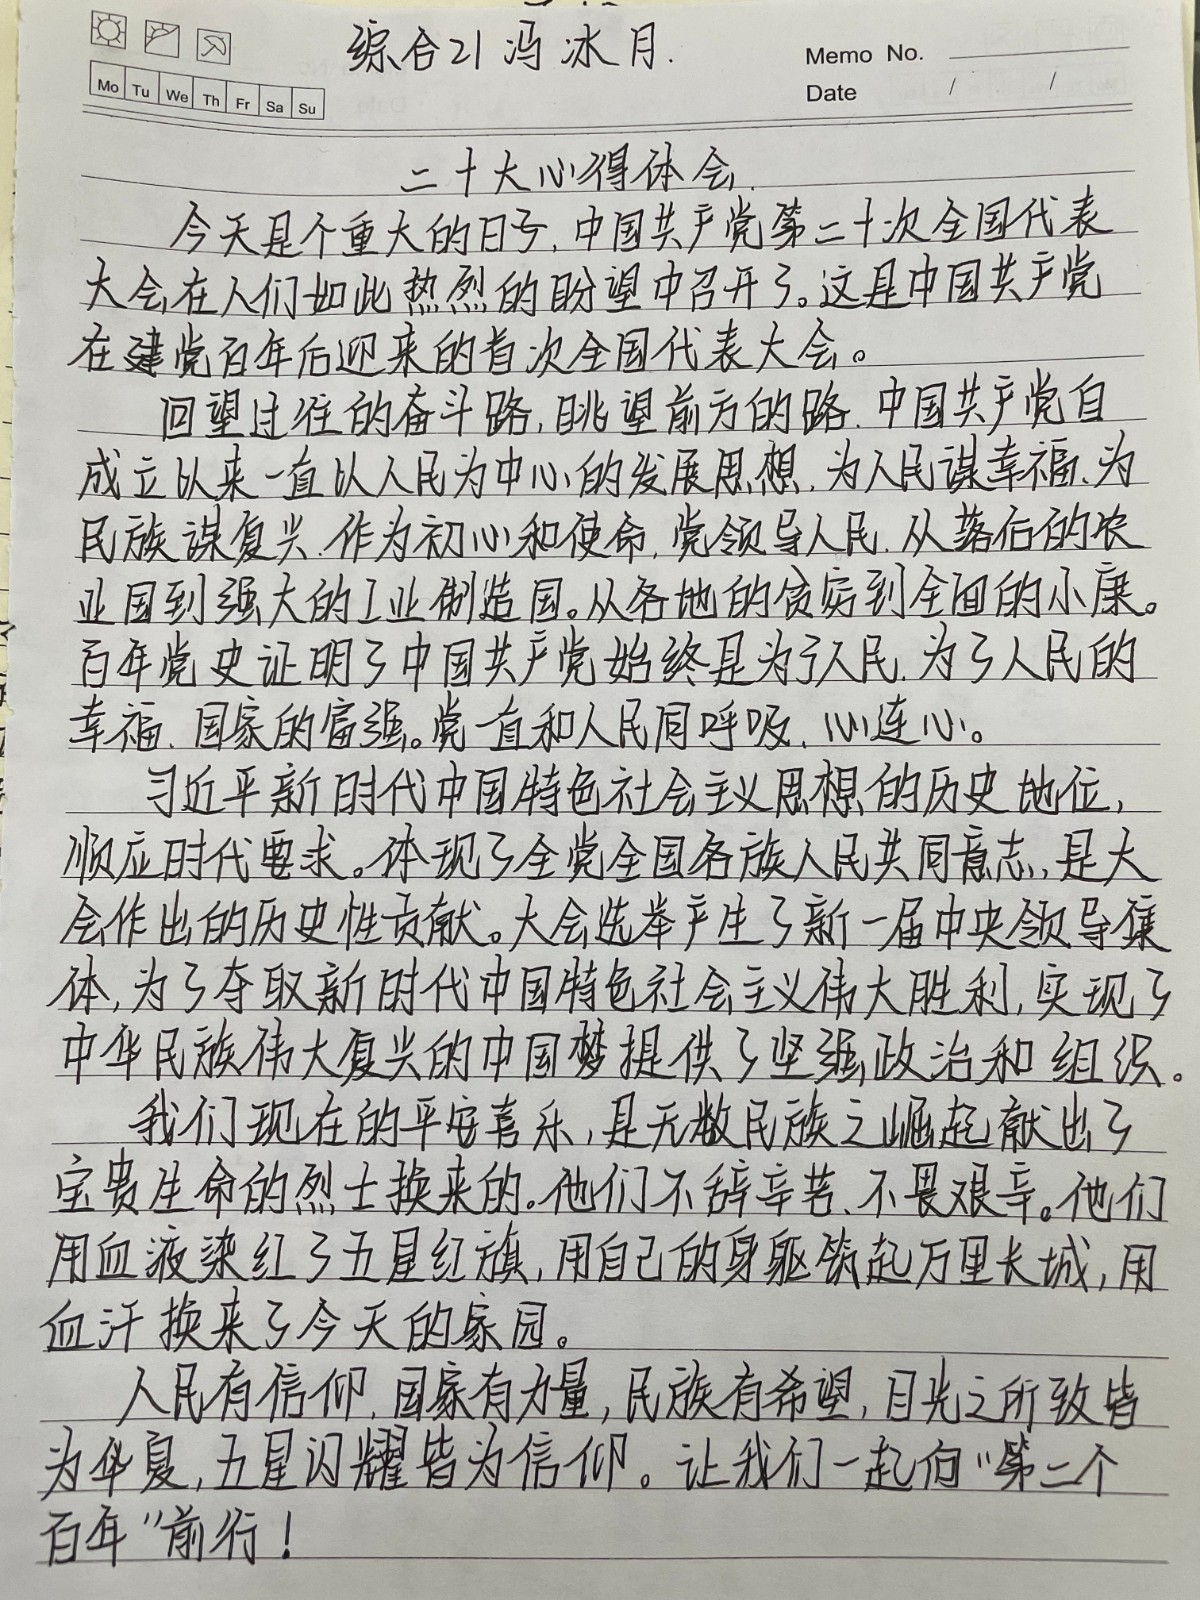 综合21冯冰月.
Memo No.
Mo Tu We Th Fr Sa Su
Date / /
二十大心得体会.
今天是个重大的日子,中国共产党第二十次全国代表
大会在人们如此热烈的盼望中召开了。这是中国共产党
在建党百年后迎来的首次全国代表大会。
回望过往的奋斗路,眺望前方的路.中国共产党自
成立以来一直以人民为中心的发展思想,为人民谋幸福、为
民族谋复兴.作为初心和使命,党领导人民.从落后的农
业国到强大的工业制造国。从各地的贫穷到全面的小康。
百年党史证明了中国共产党始终是为了人民,为了人民的
幸福、国家的富强。党一直和人民同呼吸、心连心。
习近平新时代中国特色社会主义思想的历史地位,
顺应时代要求。体现了全党全国各族人民共同意志,是大
会作出的历史性贡献。大会选举产生了新一届中央领导集
体,为了夺取新时代中国特色社会主义伟大胜利,实现了
中华民族伟大复兴的中国梦提供了坚强政治和组织。
我们现在的平安喜乐,是无数民族之崛起献出了
宝贵生命的烈士换来的。他们不辞辛苦、不畏艰辛。他们
用血液染红了五星红旗,用自己的身躯筑起万里长城,用
血汗换来了今天的家园。
人民有信仰,国家有力量,民族有希望,目光之所致皆
为华夏,五星闪耀皆为信仰。让我们一起向“第二个
百年”前行!